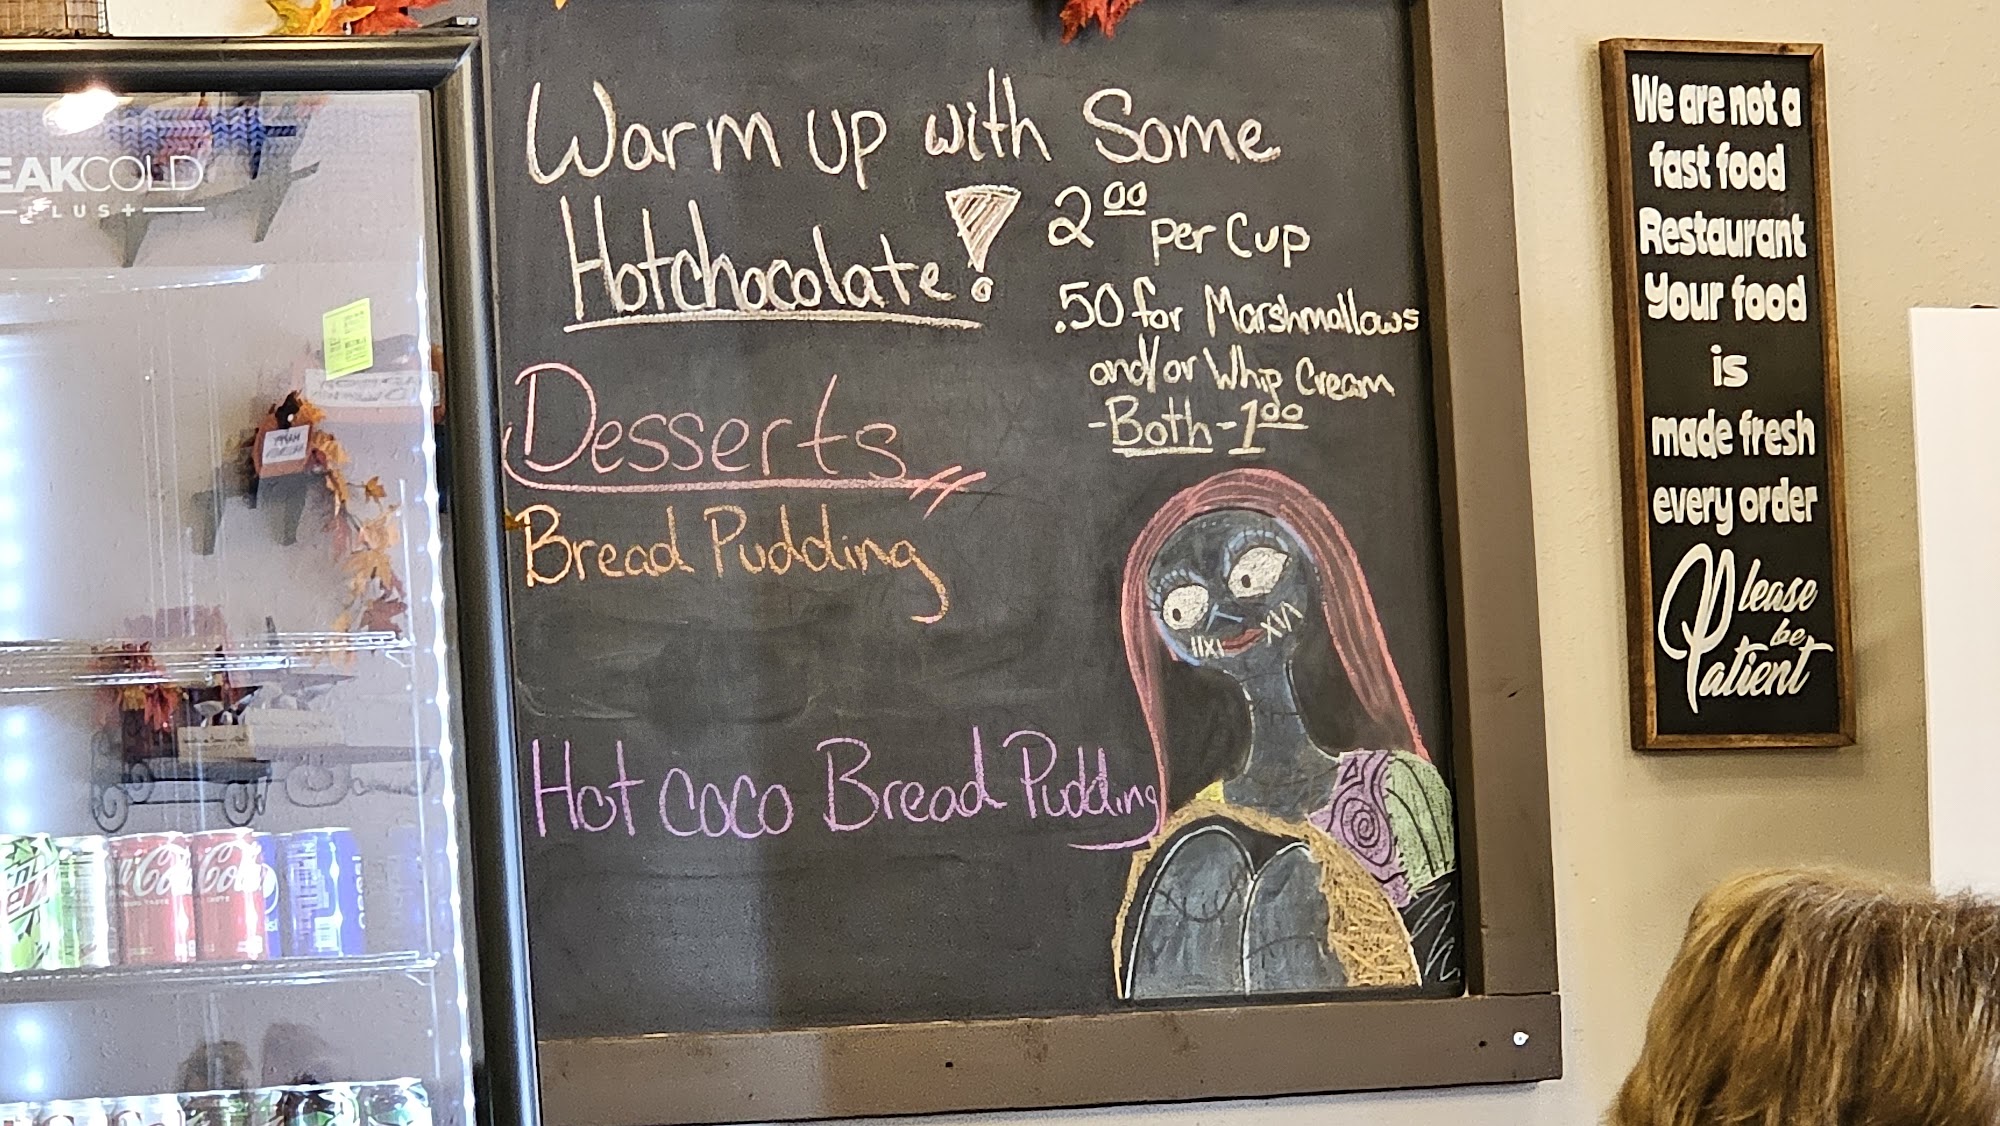 Warm up with Some
Hotchocolate!
2.00 per Cup
.50 for Marshmallows
and/or Whip Cream
-Both-1.00
Desserts
Bread Pudding
Hot coco Bread Pudding
We are not a
fast food
Restaurant
Your food
is
made fresh
every order
Please
be
Patient
EAKCOLD
PLUS+
Coca